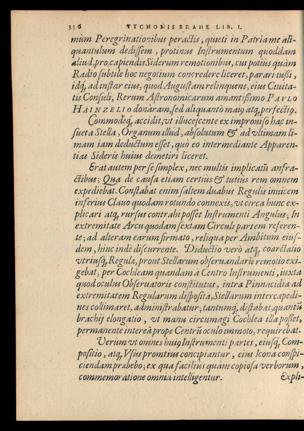 336 TYCHONIS BRAHE LIB. I.
mium Peregrinationibus peractis, quieti in Patria me ali-
quantulum dedissem, protinus Instrumentum quoddam
aliud, pro capiendis Siderum remotionibus, cui potiùs quàm
Radio subtile hoc negotium concredere liceret, parari iussi,
idq́, ad instar eius, quod Augustæ relinquens, eius Ciuita-
tis Consuli, Rerum Astronomicarum amantissimo PAVLO
HAINZELIO donâram, sed aliquantò maiq́, atq́, perfectiq́.
Commodeq́, accidit, vt illucescente ex improuiso hac in-
sueta Stella, Organum illud, absolutum & ad vltimam li-
mam iam deductum esset, quò eo intermediante Apparen-
tias Sideris huius demetiri liceret.
Erat autem per se simplex, nec multis implicatū anfra-
ctibus; Qua de causa etiam certius & tutius rem omnem
expediebat. Constabat enim saltem duabus Regulis inuicem
inferius Clauo quodam rotundo connexis, vt circa hunc ex-
plicari atq́, rursus contrahi posset Instrumenti Angulus; In
extremitate Arcu quodam sextam Circuli partem referen-
te; ad alteram earum firmato, reliqua per Ambitum eius-
dem, hinc inde discurrente. Diductio verò atq́, coarctatio
vtriusq́, Regulæ, prout Stellarum obseruandarū remotio exi-
gebat, per Cochleam quandam à Centro Instrumenti, iuxta
quod oculus Obseruatoris constitutus, intra Pinnacidia ad
extremitatem Regularum disposita, Stellarum intercapedi-
nes collimaret, administrabatur; tantumq́, distabat, quantū
brachij elongatio, vt manu circumagi Cochlea illa posset,
permanente intereà propè Centrū oculo immoto, requirebat.
Verùm vt omnes huiq́ Instrumenti partes, eiusq́, Com-
positio, atq́, Vsus promtius concipiantur, eius Icona conspi-
ciendam præbebo, ex qua facilius quàm copiosa verborum
commemoratione omnia intelligentur. Expli-